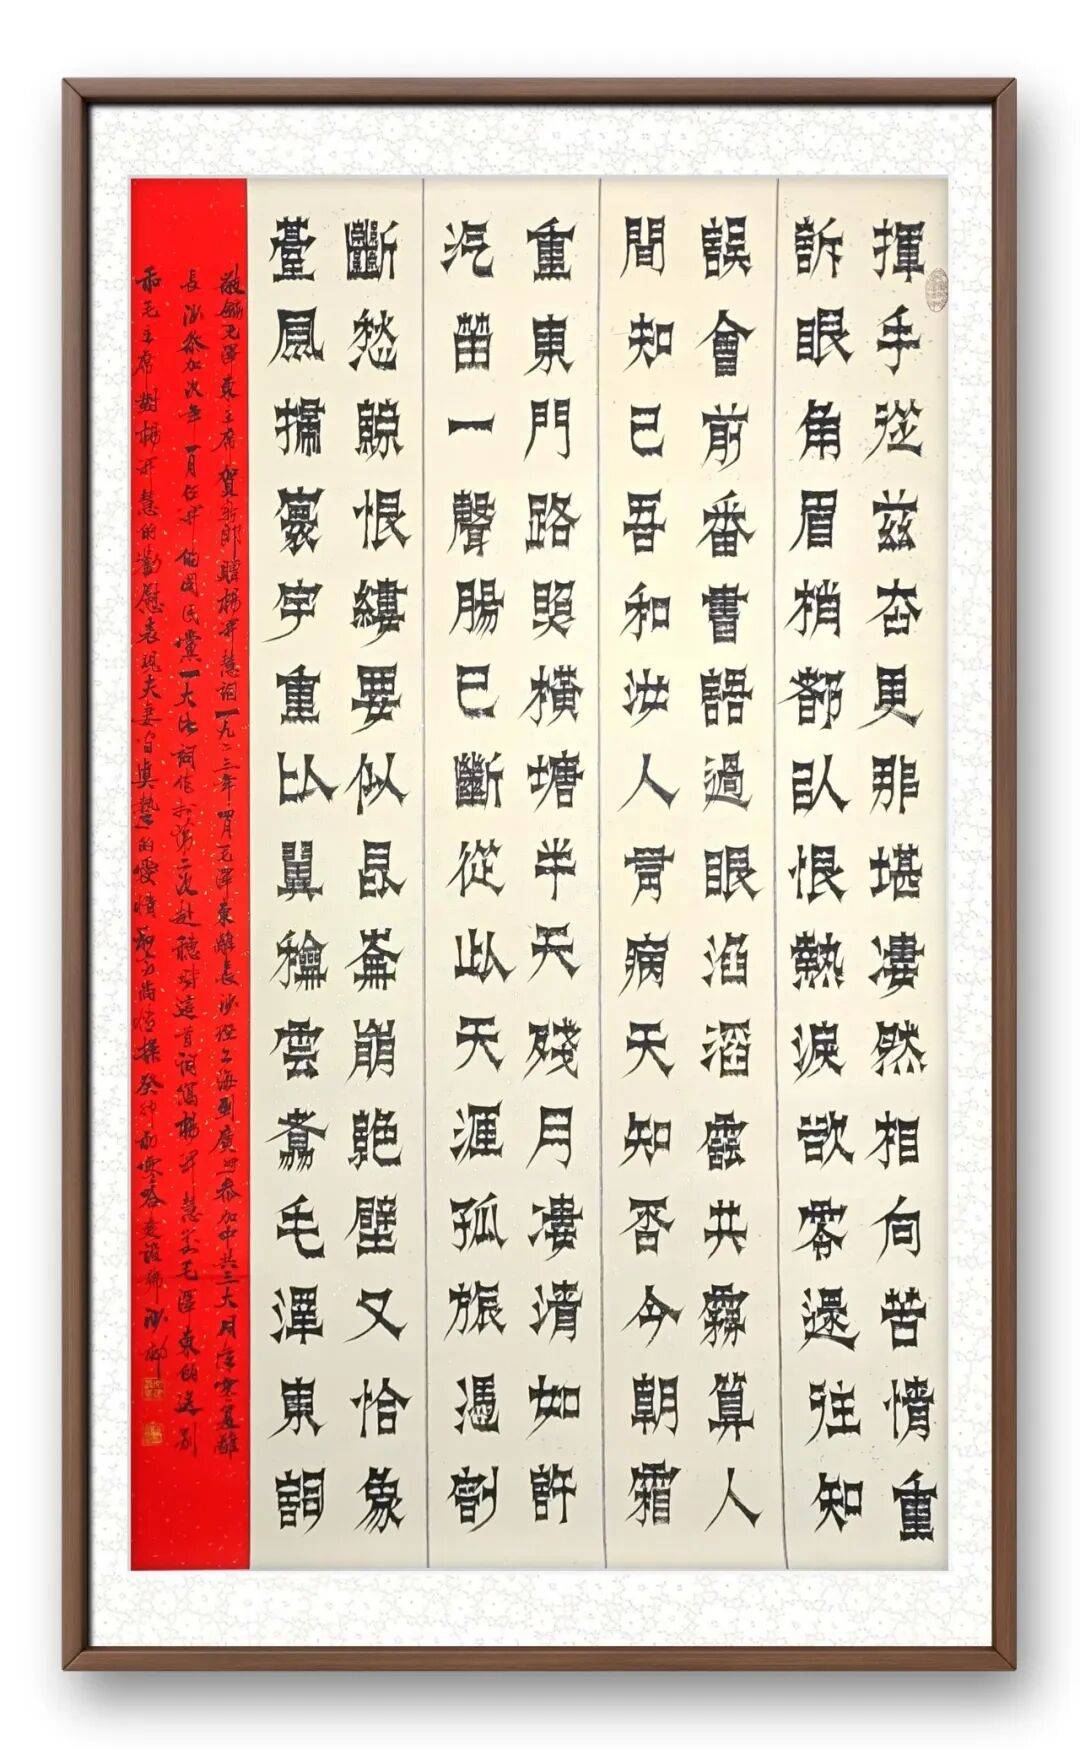 揮手從兹去更那堪凄然相向苦情重
訴眼角眉梢都似恨熱淚欲零還住知
誤會前番書語過眼滔滔雲共霧算人
間知己吾和汝人有病天知否今朝霜
重東門路照橫塘半天殘月凄清如許
汽笛一聲腸已斷從此天涯孤旅憑割
斷愁絲恨縷要似崑崙崩絕壁又恰象
臺風掃寰宇重比翼和雲翥毛澤東詞
敬錄毛澤東主席賀新郎贈楊開慧詞一九二三年四月毛澤東離長沙經上海到廣州參加中共三大同年寒夏離
長沙參加次年一月召開的國民黨一大此詞作於第二次赴穗時這首詞寫楊開慧對毛澤東的送別
和毛主席對楊開慧的勸慰表現夫妻間真摯的愛情和高尚情操癸卯初寒